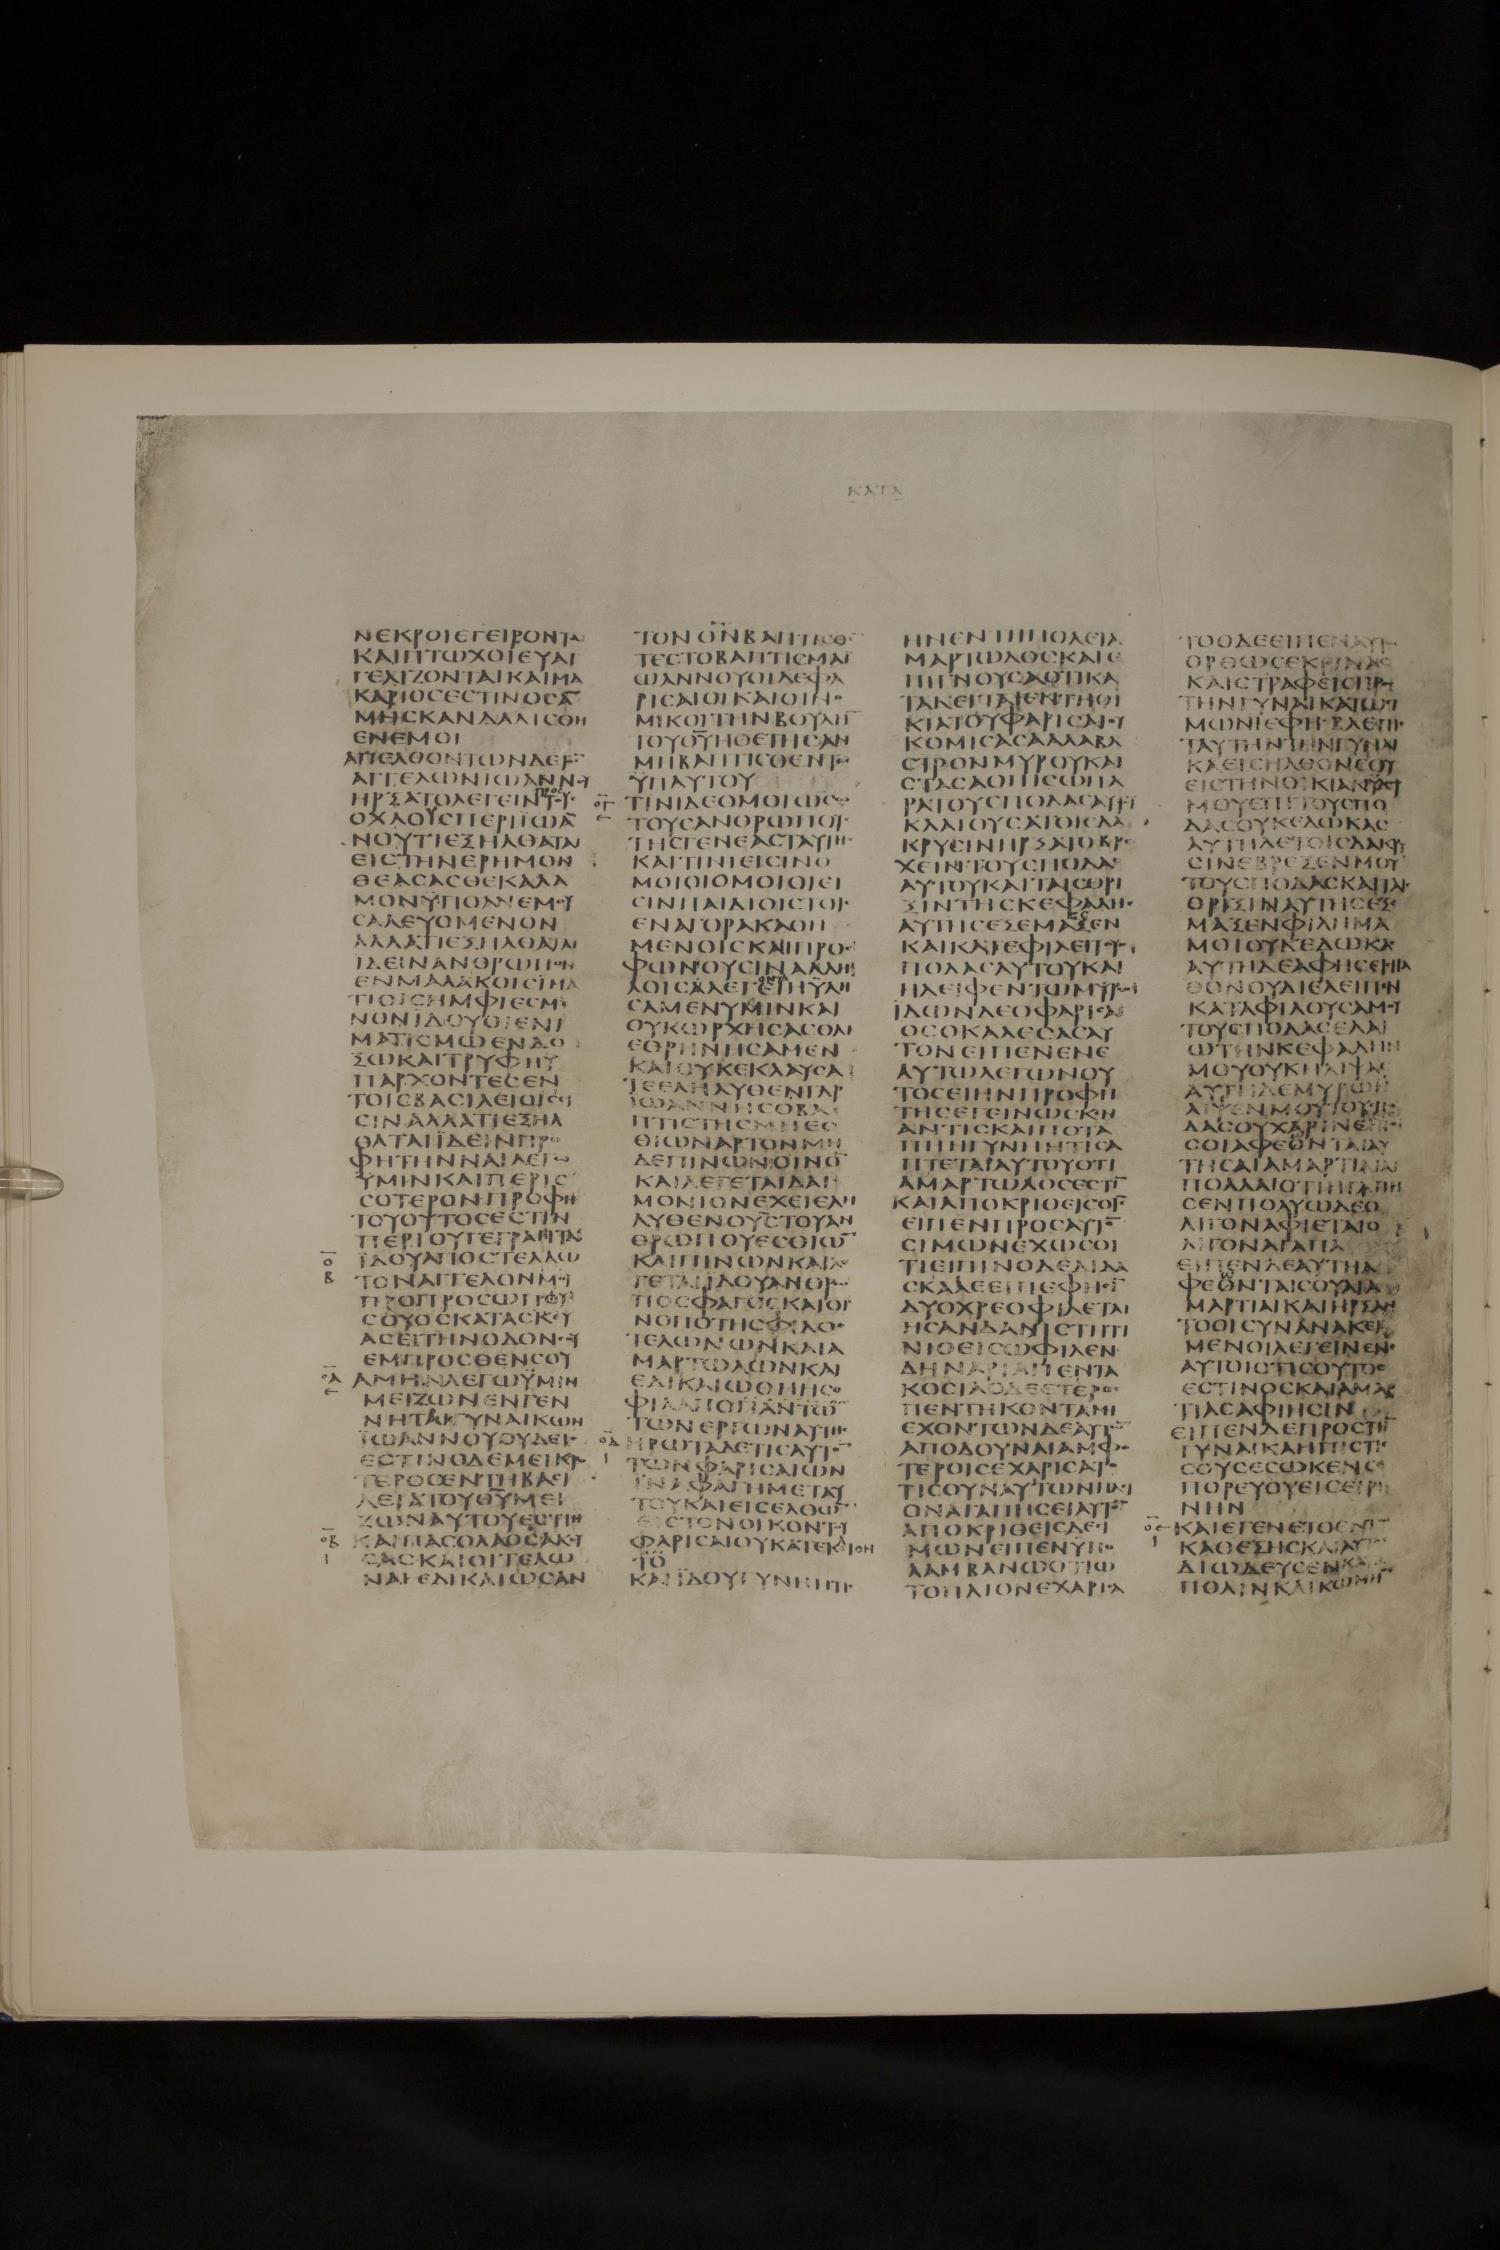 ΚΑΤΑ
ΝΕΚΡΟΙΕΓΕΙΡΟΝΤΑΙ
ΚΑΙΠΤΩΧΟΙΕΥΑΓ
ΓΕΛΙΖΟΝΤΑΙΚΑΙΜΑ
ΚΑΡΙΟCΕCΤΙΝΟCΑ̅
ΜΗCΚΑΝΔΑΛΙCΘΗ
ΕΝΕΜΟΙ
ΑΠΕΛΘΟΝΤΩΝΔΕΤ̅
ΑΓΓΕΛΩΝΙΩΑΝΝΟΥ
ΗΡΞΑΤΟΛΕΓΕΙΝΠΡΟCΤΟΥC
ΟΧΛΟΥCΠΕΡΙΪΩΑ̅
ΝΟΥΤΙΕΞΗΛΘΑΤΑΙ
ΕΙCΤΗΝΕΡΗΜΟΝ
ΘΕΑCΑCΘΕΚΑΛΑ
ΜΟΝΫΠΟΑΝΕΜΟΥ
CΑΛΕΥΟΜΕΝΟΝ
ΑΛΛΑΤΙΕΞΗΛΘΑΤΑΙ
ΙΔΕΙΝΑΝΘΡΩΠΟΝ
ΕΝΜΑΛΑΚΟΙCΪΜΑ
ΤΙΟΙCΗΜΦΙΕCΜΕ
ΝΟΝΪΔΟΥΟΙΕΝΪ
ΜΑΤΙCΜΩΕΝΔΟ
ΞΩΚΑΙΤΡΥΦΗΫ
ΠΑΡΧΟΝΤΕCΕΝ
ΤΟΙCΒΑCΙΛΕΙΟΙCΕΙ
CΙΝΑΛΛΑΤΙΕΞΗΛ
ΘΑΤΑΙΪΔΕΙΝΠΡΟ
ΦΗΤΗΝΝΑΙΛΕΓΩ
ΥΜΙΝΚΑΙΠΕΡΙC
CΟΤΕΡΟΝΠΡΟΦΗ
ΤΟΥΟΥΤΟCΕCΤΙΝ
ΠΕΡΙΟΥΓΕΓΡΑΠΤΑΙ
Ο̅Β
ΪΔΟΥΑΠΟCΤΕΛΛΩ
ΤΟΝΑΓΓΕΛΟΝΜΟΥ
ΠΡΟΠΡΟCΩΠΟΥ
CΟΥΟCΚΑΤΑCΚΕΥ
ΑCΕΙΤΗΝΟΔΟΝCΟΥ
ΕΜΠΡΟCΘΕΝCΟΥ
ΑΜΗΝΛΕΓΩΫΜΙΝ
ΜΕΙΖΩΝΕΝΓΕΝ
ΝΗΤΟΙCΓΥΝΑΙΚΩΝ
ΪΩΑΝΝΟΥΟΥΔΕΙC
ΕCΤΙΝΟΔΕΜΕΙΚΡΟ
ΤΕΡΟCΕΝΤΗΒΑCΙ
ΛΕΙΑΤΟΥΘ̅Υ̅ΜΕΙ
ΖΩΝΑΥΤΟΥΕCΤΙΝ
ΚΑΙΠΑCΟΛΑΟCΑΚΟΥ
CΑCΚΑΙΟΙΤΕΛΩ
ΝΑΙΕΔΙΚΑΙΩCΑΝ
ΤΟΝΘ̅Ν̅ΒΑΠΤΙCΘΕ̅
ΤΕCΤΟΒΑΠΤΙCΜΑΪ
ΩΑΝΝΟΥΟΙΔΕΦΑ
ΡΙCΑΙΟΙΚΑΙΟΙΝΟ
ΜΙΚΟΙΤΗΝΒΟΥΛΗ̅
ΤΟΥΘ̅Υ̅ΗΘΕΤΗCΑΝ
ΜΗΒΑΠΤΙCΘΕΝΤΕC
ΫΠΑΥΤΟΥ
ΤΙΝΙΔΕΟΜΟΙΩCΩ
ΤΟΥCΑΝΘΡΩΠΟΥC
ΤΗCΓΕΝΕΑCΤΑΥΤΗC
ΚΑΙΤΙΝΙΕΙCΙΝΟ
ΜΟΙΟΙΟΜΟΙΟΙΕΙ
CΙΝΠΑΙΔΙΟΙCΤΟΙC
ΕΝΑΓΟΡΑΚΑΘΗ
ΜΕΝΟΙCΚΑΙΠΡΟC
ΦΩΝΟΥCΙΝΑΛΛΗ
ΛΟΙCΑΛΕΓΕΙΗΫΛΗ
CΑΜΕΝΥΜΙΝΚΑΙ
ΟΥΚΩΡΧΗCΑCΘΑΙ
ΕΘΡΗΝΗCΑΜΕΝ
ΚΑΙΟΥΚΕΚΛΑΥCΑ
ΤΕΕΛΗΛΥΘΕΝΓΑΡ
ΪΩΑΝΝΗCΟΒΑ
ΠΤΙCΤΗCΜΗΕC
ΘΙΩΝΑΡΤΟΝΜΗ
ΔΕΠΙΝΩΝΟΙΝΟ̅
ΚΑΙΛΕΓΕΤΑΙΔΑΙ
ΜΟΝΙΟΝΕΧΕΙΕΛΗ
ΛΥΘΕΝΟΥCΤΟΥΑΝ
ΘΡΩΠΟΥΕCΘΙΩ̅
ΚΑΙΠΙΝΩΝΚΑΙΛΕ
ΓΕΤΑΙΪΔΟΥΑΝΘΡΩ
ΠΟCΦΑΓΟCΚΑΙΟΙ
ΝΟΠΟΤΗCΦΙΛΟC
ΤΕΛΩΝΩΝΚΑΙΑ
ΜΑΡΤΩΛΩΝΚΑΙ
ΕΔΙΚΑΙΩΘΗΗCΟ
ΦΙΑΑΠΟΠΑΝΤΩ̅
ΤΩΝΕΡΓΩΝΑΥΤΗC
ΗΡΩΤΑΔΕΤΙCΑΥΤΟ̅
ΤΩΝΦΑΡΙCΑΙΩΝ
ΪΝΑΦΑΓΗΜΕΤΑΥ
ΤΟΥΚΑΙΕΙCΕΛΘΩ̅
ΕΙCΤΟΝΟΙΚΟΝΤΟΥ
ΦΑΡΙCΑΙΟΥΚΑΤΕΚΛΙΘΗ
ΤΟ
ΚΑΙΪΔΟΥΓΥΝΗΗΤΙC
ΗΝΕΝΤΗΠΟΛΕΙΑ
ΜΑΡΤΩΛΟCΚΑΙΕ
ΠΙΓΝΟΥCΑΟΤΙΚΑ
ΤΑΚΕΙΤΑΙΕΝΤΗΟΙ
ΚΙΑΤΟΥΦΑΡΙCΑΙΟΥ
ΚΟΜΙCΑCΑΑΛΑΒΑ
CΤΡΟΝΜΥΡΟΥΚΑΙ
CΤΑCΑΟΠΙCΩΠΑ
ΡΑΤΟΥCΠΟΔΑCΑΥΤΟΥ
ΚΛΑΙΟΥCΑΤΟΙCΔΑ
ΚΡΥCΙΝΗΡΞΑΤΟΒΡΕ
ΧΕΙΝΤΟΥCΠΟΔΑC
ΑΥΤΟΥΚΑΙΤΑΙCΘΡΙ
ΞΙΝΤΗCΚΕΦΑΛΗC
ΑΥΤΗCΕΞΕΜΑΞΕΝ
ΚΑΙΚΑΤΕΦΙΛΕΙΤΟΥC
ΠΟΔΑCΑΥΤΟΥΚΑΙ
ΗΛΕΙΦΕΝΤΩΜΥΡΩ
ΪΔΩΝΔΕΟΦΑΡΙCΑΙ
ΟCΟΚΑΛΕCΑCΑΥ
ΤΟΝΕΙΠΕΝΕΝΕ
ΑΥΤΩΛΕΓΩΝΟΥ
ΤΟCΕΙΗΝΠΡΟΦΗ
ΤΗCΕΓΕΙΝΩCΚΕΝ
ΑΝΤΙCΚΑΙΠΟΤΑ
ΠΗΗΓΥΝΗΗΤΙCΑ
ΠΤΕΤΑΙΑΥΤΟΥΟΤΙ
ΑΜΑΡΤΩΛΟCΕCΤΙ̅
ΚΑΙΑΠΟΚΡΙΘΕΙCΟΙ̅C̅
ΕΙΠΕΝΠΡΟCΑΥΤΟ̅
CΙΜΩΝΕΧΩCΟΙ
ΤΙΕΙΠΙΝΟΔΕΔΙΔΑ
CΚΑΛΕΕΙΠΕΦΗCΙ̅
ΔΥΟΧΡΕΟΦΙΛΕΤΑΙ
ΗCΑΝΔΑΝΙCΤΗΤΙ
ΝΙΟΕΙCΩΦΙΛΕΝ
ΔΗΝΑΡΙΑΠΕΝΤΑ
ΚΟCΙΑΟΔΕΕΤΕΡΟC
ΠΕΝΤΗΚΟΝΤΑΜΗ
ΕΧΟΝΤΩΝΔΕΑΥΤΩ̅
ΑΠΟΔΟΥΝΑΙΑΜΦΟ
ΤΕΡΟΙCΕΧΑΡΙCΑΤΟ
ΤΙCΟΥΝΑΥΤΩΝΠΛΙ
ΟΝΑΓΑΠΗCΕΙΑΥΤΟ̅
ΑΠΟΚΡΙΘΕΙCΔΕCΙ
ΜΩΝΕΙΠΕΝΥΠΟ
ΛΑΜΒΑΝΩΟΤΙΩ
ΤΟΠΛΙΟΝΕΧΑΡΙCΑ
ΤΟΟΔΕΕΙΠΕΝΑΥΤΩ
ΟΡΘΩCΕΚΡΙΝΑC
ΚΑΙCΤΡΑΦΕΙCΠΡΟC
ΤΗΝΓΥΝΑΙΚΑΤΩCΙ
ΜΩΝΙΕΦΗΒΛΕΠΙC
ΤΑΥΤΗΝΤΗΝΓΥΝΑΙ
ΚΑΕΙCΗΛΘΟΝCΟΥ
ΕΙCΤΗΝΟΙΚΙΑΝΫΔΩΡ
ΜΟΥΕΠΙΤΟΥCΠΟ
ΔΑCΟΥΚΕΔΩΚΑC
ΑΥΤΗΔΕΤΟΙCΔΑΚΡΥ
CΙΝΕΒΡΕΞΕΝΜΟΥ
ΤΟΥCΠΟΔΑCΚΑΙΤΑΙC
ΘΡΙΞΙΝΑΥΤΗCΕΞΕ
ΜΑΞΕΝΦΙΛΗΜΑ
ΜΟΙΟΥΚΕΔΩΚΑC
ΑΥΤΗΔΕΑΦΗCΕΙCΗΛ
ΘΟΝΟΥΔΙΕΛΕΙΠΕΝ
ΚΑΤΑΦΙΛΟΥCΑΜΟΥ
ΤΟΥCΠΟΔΑCΕΛΑΙ
ΩΤΗΝΚΕΦΑΛΗΝ
ΜΟΥΟΥΚΗΛΙΨΑC
ΑΥΤΗΔΕΜΥΡΩΗ
ΛΙΨΕΝΜΟΥΤΟΥCΠΟ
ΔΑCΟΥΧΑΡΙΝΕΙΠΟ̅
CΟΙΑΦΕΩΝΤΑΙΑΥ
ΤΗCΑΙΑΜΑΡΤΙΑΙΑΙ
ΠΟΛΛΑΙΟΤΙΗΓΑΠΗ
CΕΝΠΟΛΥΩΔΕΟ
ΛΙΓΟΝΑΦΙΕΤΑΙΟ
ΛΙΓΟΝΑΓΑΠΑ
ΕΙΠΕΝΔΕΑΥΤΗΑ
ΦΕΩΝΤΑΙCΟΥΑΙΑ
ΜΑΡΤΙΑΙΚΑΙΗΡΞΑΝ
ΤΟΟΙCΥΝΑΝΑΚΕΙ
ΜΕΝΟΙΛΕΓΕΙΝΕΝΕ
ΑΥΤΟΙCΤΙCΟΥΤΟC
ΕCΤΙΝΟCΚΑΙΑΜΑΡ
ΤΙΑCΑΦΙΗCΙΝ
ΕΙΠΕΝΔΕΠΡΟCΤΗ̅
ΓΥΝΑΙΚΑΗΠΙCΤΙC
CΟΥCΕCΩΚΕΝCΕ
ΠΟΡΕΥΟΥΕΙCΕΙΡΗ
ΝΗΝ
ΚΑΙΕΓΕΝΕΤΟΕΝΤΩ
ΚΑΘΕΞΗCΚΑΙΑΥΤΟC
ΔΙΩΔΕΥCΕΝΚΑΤΑ
ΠΟΛΙΝΚΑΙΚΩΜΗ̅